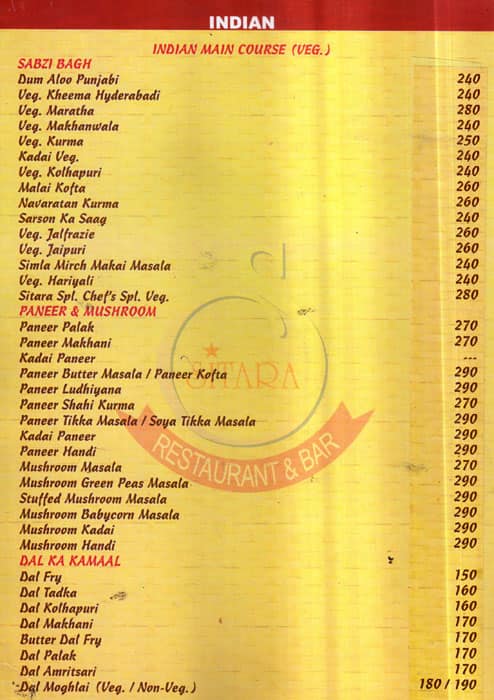 INDIAN
INDIAN MAIN COURSE (VEG.)
SABZI BAGH
Dum Aloo Punjabi 240
Veg. Kheema Hyderabadi 240
Veg. Maratha 280
Veg. Makhanwala 240
Veg. Kurma 250
Kadai Veg. 240
Veg. Kolhapuri 240
Malai Kofta 260
Navaratan Kurma 260
Sarson Ka Saag 240
Veg. Jalfrazie 260
Veg. Jaipuri 260
Simla Mirch Makai Masala 240
Veg. Hariyali 240
Sitara Spl. Chef's Spl. Veg. 280
PANEER & MUSHROOM
Paneer Palak 270
Paneer Makhani 270
Kadai Paneer ---
Paneer Butter Masala / Paneer Kofta 290
Paneer Ludhiyana 290
Paneer Shahi Kurma 270
Paneer Tikka Masala / Soya Tikka Masala 290
Kadai Paneer 290
Paneer Handi 290
Mushroom Masala 270
Mushroom Green Peas Masala 290
Stuffed Mushroom Masala 290
Mushroom Babycorn Masala 290
Mushroom Kadai 290
Mushroom Handi 290
DAL KA KAMAAL
Dal Fry 150
Dal Tadka 160
Dal Kolhapuri 160
Dal Makhani 170
Butter Dal Fry 170
Dal Palak 170
Dal Amritsari 170
Dal Moghlai (Veg. / Non-Veg.) 180 / 190
SITARA
RESTAURANT & BAR